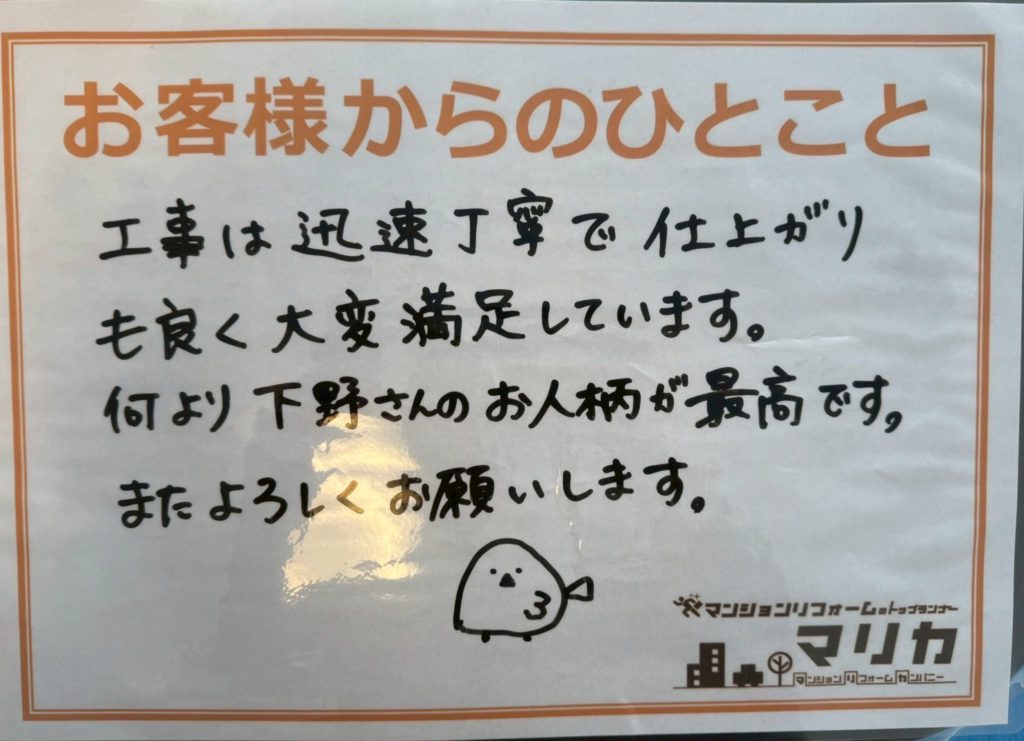 お客様からのひとこと
工事は迅速丁寧で仕上がり
も良く大変満足しています。
何より下野さんのお人柄が最高です。
またよろしくお願いします。
マンションリフォームのトップランナー
マリカ
マンションリフォームカンパニー